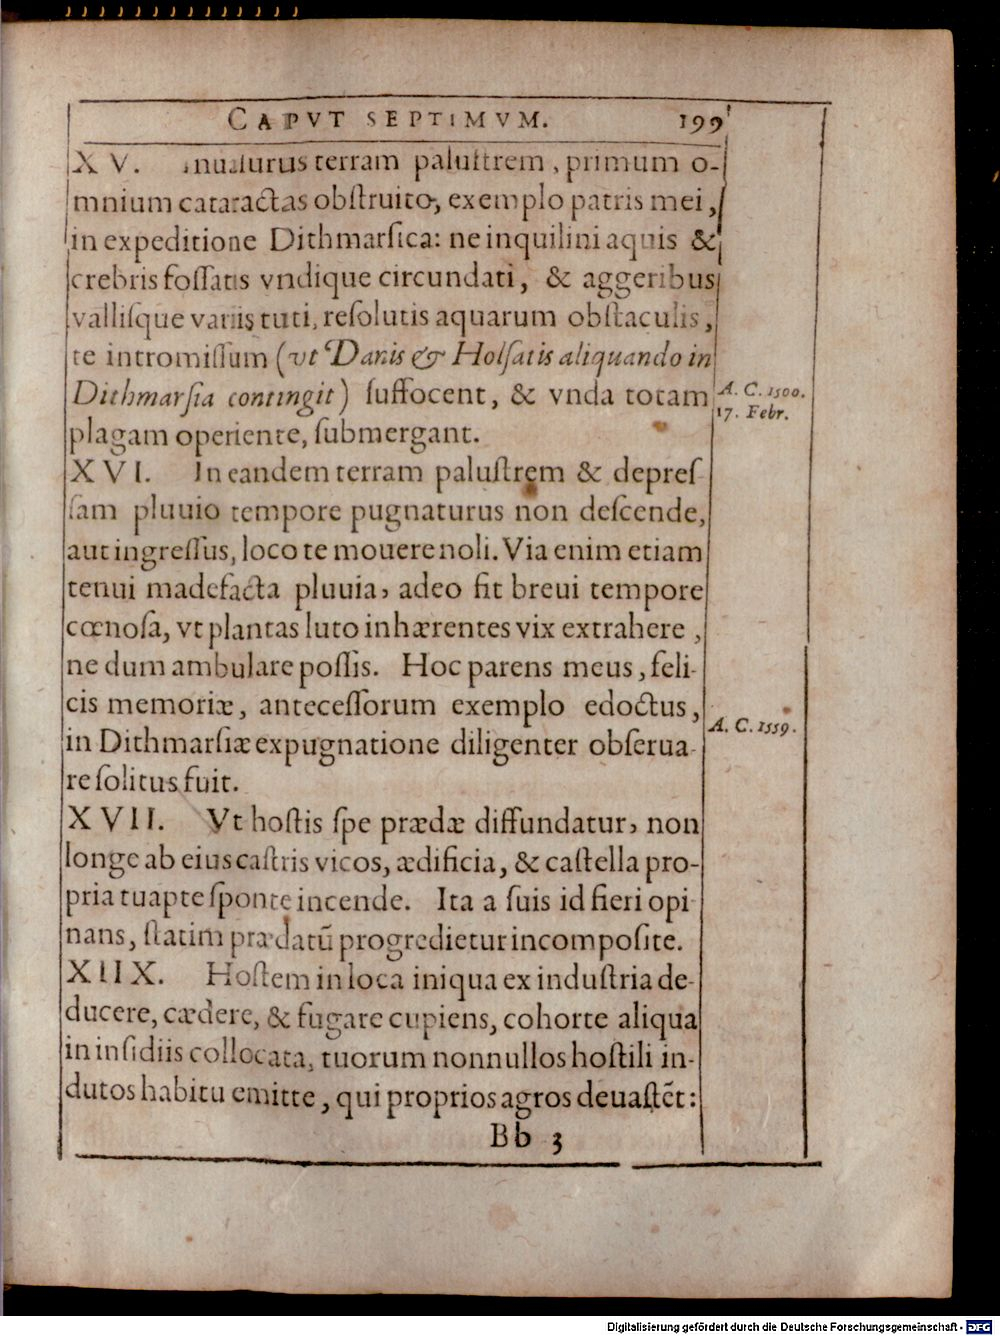 CAPVT SEPTIMVM. 199
XV. Inuasurus terram palustrem, primum o-
mnium cataractas obstruito, exemplo patris mei,
in expeditione Dithmarsica: ne inquilini aquis &
crebris fossatis vndique circundati, & aggeribus
vallisque variis tuti, resolutis aquarum obstaculis,
te intromissum (vt Danis & Holsatis aliquando in
Dithmarsia contingit) suffocent, & vnda totam
A. C. 1500.
17. Febr.
plagam operiente, submergant.
XVI. In eandem terram palustrem & depres-
sam pluuio tempore pugnaturus non descende,
aut ingressus, loco te mouere noli. Via enim etiam
tenui madefacta pluuia, adeo fit breui tempore
cœnosa, vt plantas luto inhærentes vix extrahere,
ne dum ambulare possis. Hoc parens meus, feli-
cis memoriæ, antecessorum exemplo edoctus,
A. C. 1559.
in Dithmarsiæ expugnatione diligenter obserua-
re solitus fuit.
XVII. Vt hostis spe prædæ diffundatur, non
longe ab eius castris vicos, ædificia, & castella pro-
pria tuapte sponte incende. Ita a suis id fieri opi-
nans, statim prædatū progredietur incomposite.
XIIX. Hostem in loca iniqua ex industria de-
ducere, cædere, & fugare cupiens, cohorte aliqua
in insidiis collocata, tuorum nonnullos hostili in-
dutos habitu emitte, qui proprios agros deuastēt:
Bb 3
Digitalisierung gefördert durch die Deutsche Forschungsgemeinschaft - DFG